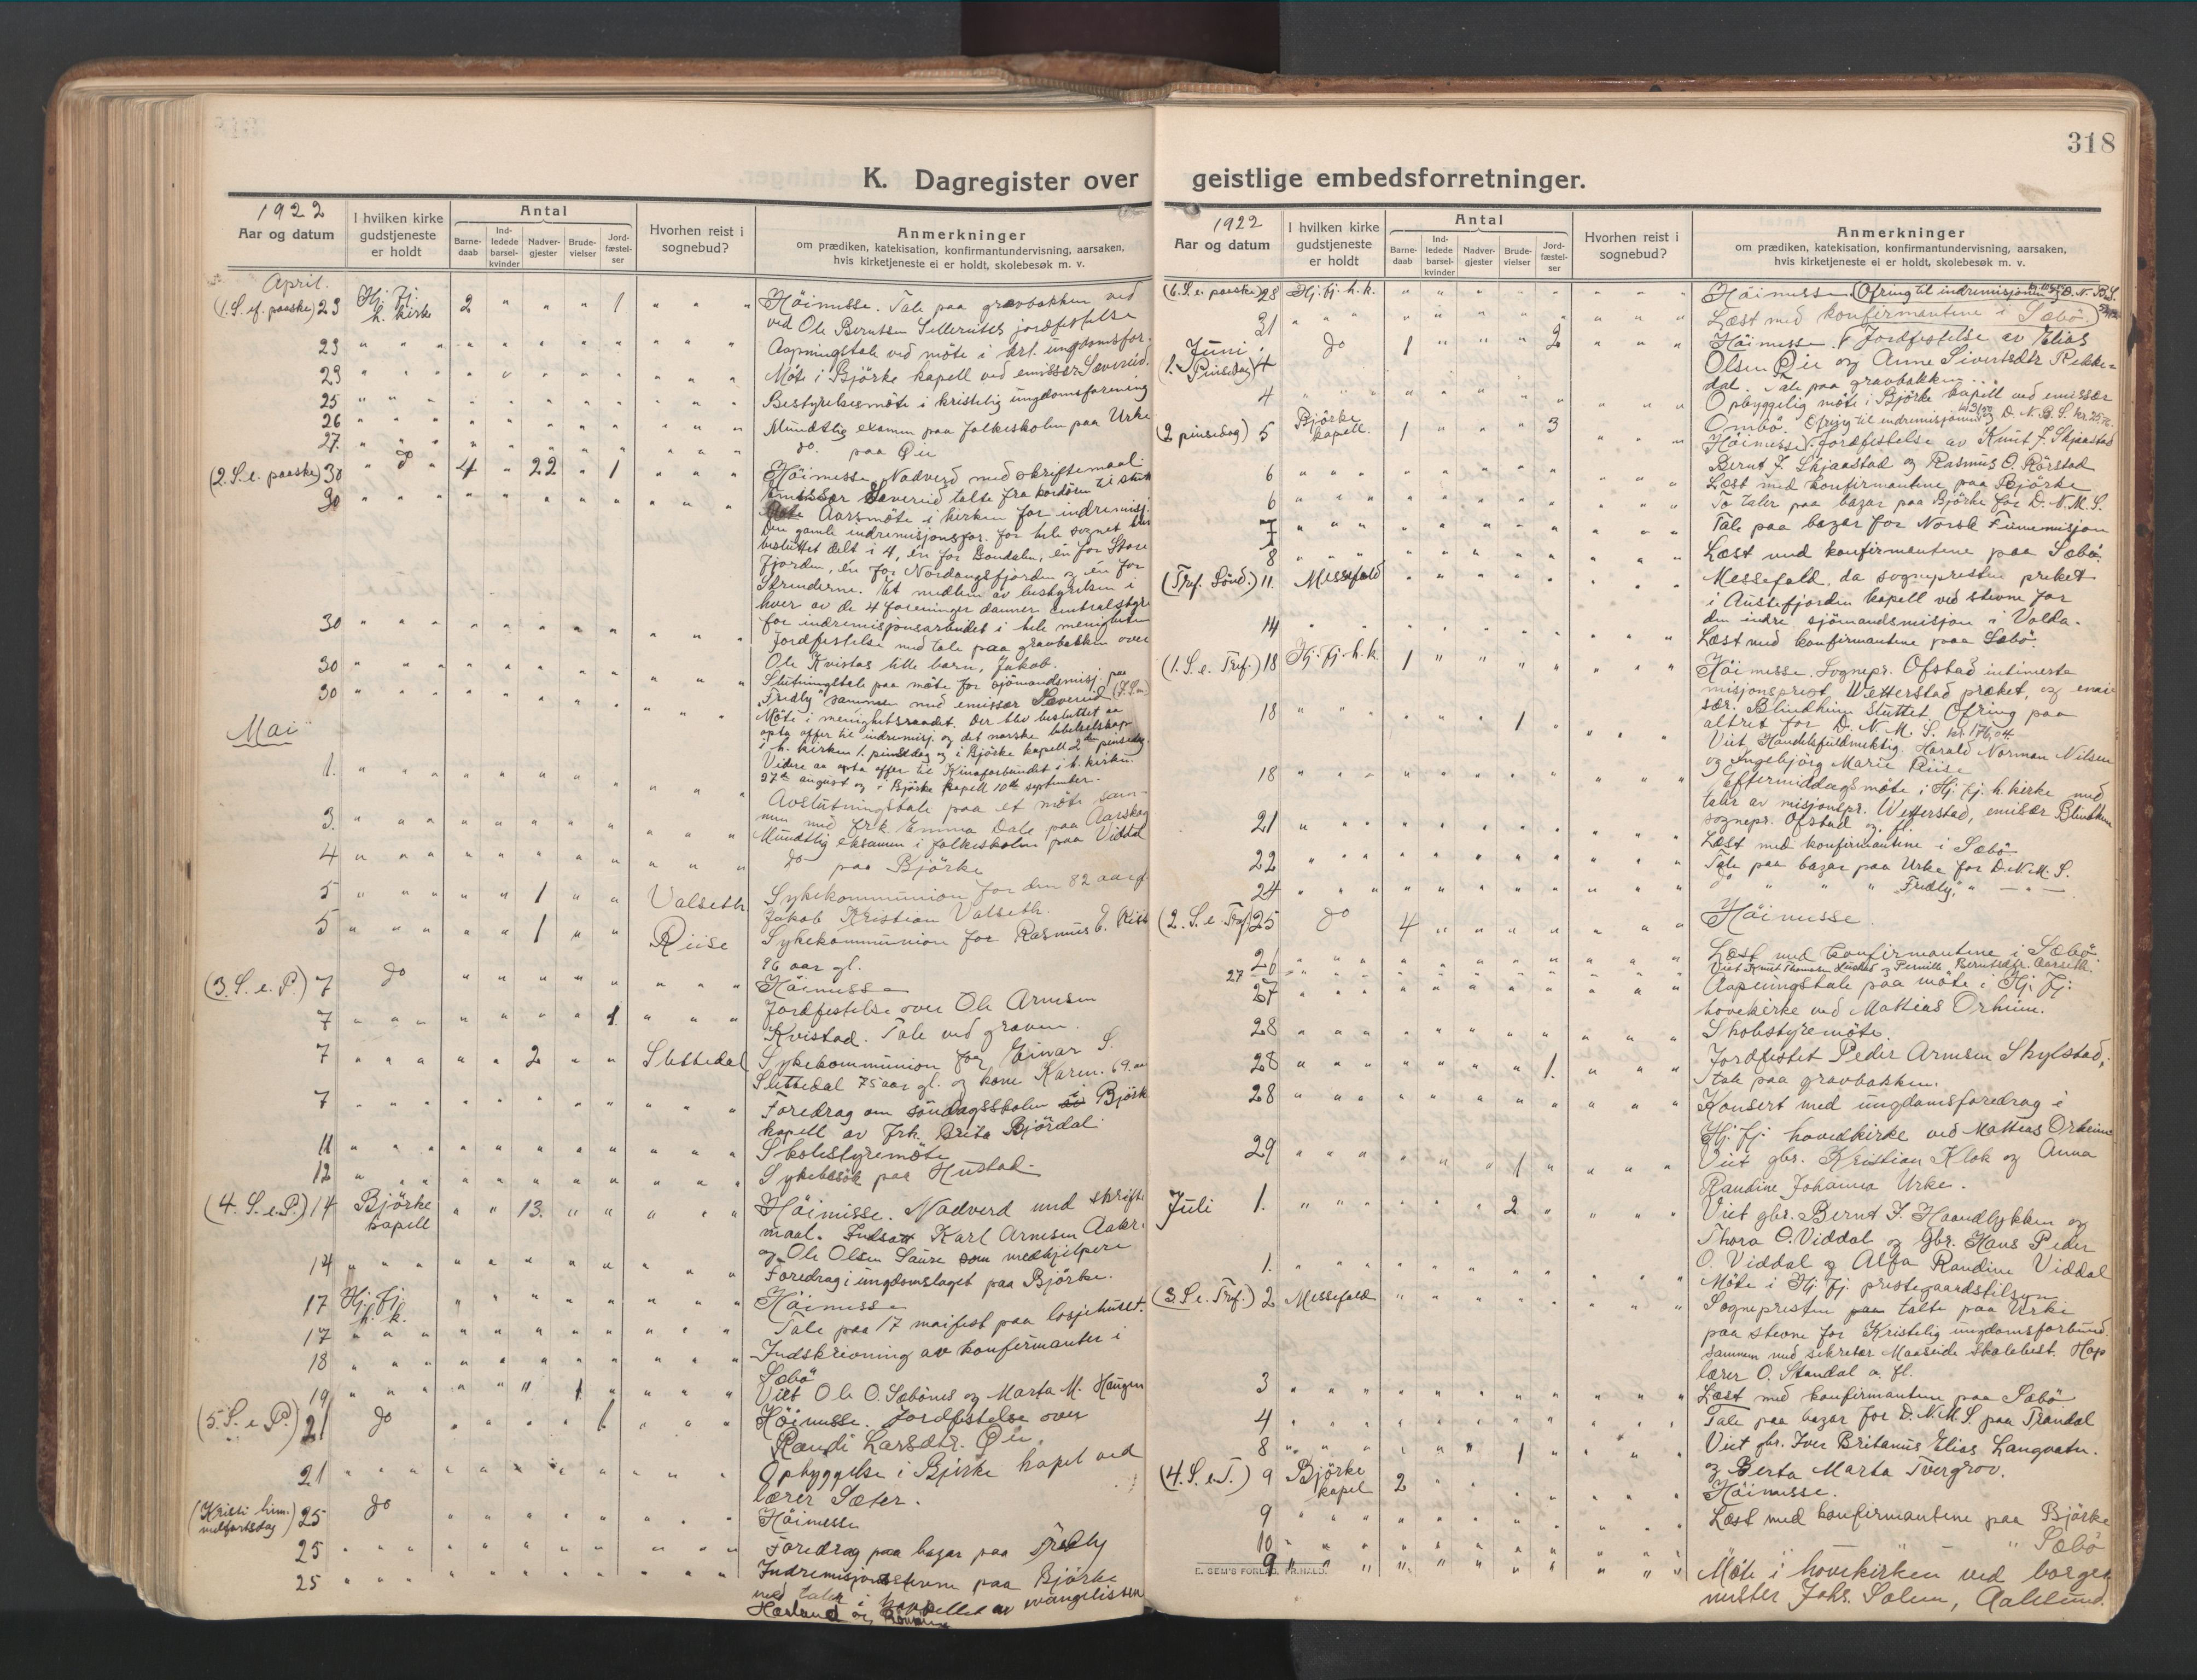 318
K. Dagregister over geistlige embedsforretninger.
1922
Aar og datum
I hvilken kirke gudstjeneste er holdt
Antal
Barne-daab
Ind-ledede barsel-kvinder
Nadver-gjester
Brude-vielser
Jord-fæstel-ser
Hvorhen reist i sognebud?
Anmerkninger
om prædiken, katekisation, konfirmantundervisning, aarsaken,
hvis kirketjeneste ei er holdt, skolebesøk m. v.
April.
(1. S. ef. paaske) 23 Hj. fj. h. kirke 2 " " " 1 " " " Höimesse. Tale paa gravbakken ved
ved Ole Berntsen jordfestelse
23 Aapningstale ved möte i krl. ungdomsfor.
23 Möte i Björke kapell ved emissær Sævereid.
25 Bestyrelsesmöte i kristelig ungdomsforening
26 Mundtlig examen paa folkeskolen paa Urke
27. do. paa Øie
(2. S. e. paaske) 30 " do " 4 " 22 " 1 Höimesse. Nadverd med skriftemaal.
Emissær Sævereid talte fra kordören til slut
30 Aarsmöte i kirken for indremisj.
Den gamle indremisjonsfor. for hele sognet blev
besluttet delt i 4, en for Bondalen, én for Store
fjorden, én for Nordangsfjorden og én for
Skrinderne. Et medlem av bestyrelsen i
hver av de 4 foreninger danner centralstyre
for indremisjonsarbeidet i hele menigheten
30 Jordfestelse med tale paa gravbakken over
Ole Kvistas lille barn, Jakob.
30 Slutningstale paa möte for sjömandsmisj. paa
"Fridly" sammen med emissær Sævereid (I. S. m.)
30 Möte i menighetsraadet. Der blev besluttet aa
opta offer til indremisj. og det norske bibelselskap
i h. kirken 1. pinsedag og i Björke kapell 2den pinsedag.
Videre aa opta offer til Kinaforbundet i h. kirken
27de august og i Björke kapell 10de september.
Mai
1. Avslutningstale paa et möte sam-
men med frk. Emma Dale paa Aarskog
3. Mundtlig eksamen i folkeskolen paa Viddal
4 do paa Björke
5 1 Valseth Sykekommunion for den 82 aar gl.
Jakob Kristian Valseth.
5 1 Riise Sykekommunion for Rasmus E. Riise
86 aar gl.
(3. S. e. P.) 7 do Höimesse
7 1 Jordfestelse over Ole Arnesen
Kvistad. Tale ved graven.
7 2 Slettedal Sykekommunion for Einar S.
Slettedal 75 aar gl. og kone Karen. 69. aar
7 Foredrag om söndagsskolen i Björke
kapell av frk. Brita Björdal.
11 Skolestyremöte
12 Sykebesök paa Hustad.
(4. S. e. P.) 14 Björke kapell " " 13. Höimesse. Nadverd med skrifte
maal. Indsatt Karl Arnesen Aakre
og Ole Olsen Saure som medhjelpere
14 Foredrag i ungdomslaget paa Björke.
17 Hj. fj. h. k. Höimesse
17 Tale paa 17 maifest paa losjehuset.
18 Indskrivning av konfirmanter i
Sæbö
19 1 Viet Ole O. Sæbönes og Marta M. Haugen
(5. S. e P.) 21 do 1 Höimesse. Jordfestelse over
Randi Larsdtr. Øie.
21 Opbyggelse i Björke kapel ved
lærer Sæter.
(Kristi him-melfartsdag) 25 do Höimesse
25 Foredrag paa bazar paa Fridly
25 Indremisjonsstevne paa Björke
med taler i kapellet av evangelisten
Harland og
1922
Aar og datum
I hvilken kirke gudstjeneste er holdt
Antal
Barne-daab
Ind-ledede barsel-kvinder
Nadver-gjester
Brude-vielser
Jord-fæstel-ser
Hvorhen reist i sognebud?
Anmerkninger
om prædiken, katekisation, konfirmantundervisning, aarsaken,
hvis kirketjeneste ei er holdt, skolebesøk m. v.
(6. S. e. paaske) 28 Hj. fj. h. k. Höimesse. (Ofring til indremisjonen og D. N. B. S.
31 Læst med konfirmantene i Sæbö.
Juni
(1. Pinsedag) 4 do 1 2 Höimesse. Jordfestelse av Elias
Olsen Øie og Anne Sivertsdtr. Rekke-
dal. Tale paa gravbakken.
4 Opbyggelig möte i Björke kapell ved emissær
Ombo. Ofring til indremisjonen og D. N. B. S.
(2 pinsedag) 5 Björke kapell. 1 3 Höimesse. Jordfestelse av Knut J. Skjaastad
Bernt J. Skjaastad og Rasmus O. Rörstad
6 Læst med konfirmantene paa Björke
6 To taler paa bazar paa Björke for D. N. M. S.
7 Tale paa bazar for Norsk Finnemisjon
8 Læst med konfirmantene paa Sæbö.
(Tref. Sönd.) 11. Messefald Messefald, da sognepresten preket
i Austefjorden kapell ved stevne for
den indre sjömandsmisjon i Volda.
14 Læst med konfirmantene paa Sæbö.
(1. S. e. Tref.) 18 Hj. fj. h. k. 1 Höimesse. Sognepr. Ofstad intimerte
misjonsprest Wetterstad præket, og emis-
sær. Blindheim sluttet. Ofring paa
altret for D. N. M. S. kr. 176,04.
18 1 Viet Handelsfuldmektig. Harald Norman Nilsen
og Ingebjörg Marie Riise
18 Eftermiddagsmöte i Hj. fj. h. kirke med
taler av misjonspr. Wetterstad, emisær Blindheim
sognepr. Ofstad og fl.
21 Læst med konfirmantene i Sæbö
22 Tale paa bazar paa Urke for D. N. M. S.
24 do " " " "Fridly," " — " —
(2. S. e. Tref) 25 do 4 Höimesse.
26 Læst med konfirmantene i Sæbö.
27 Viet Knut Thomasen og Pernille Berntsdtr. Aarseth.
27 Aapningstale paa möte i Hj. fj:
hovekirke ved Mattias Orheim.
28 Skolestyremöte.
28 1. Jordfestet Peder Arnesen Skylstad,
Tale paa gravbakken.
28 Konsert med ungdomsforedrag i
Hj. fj. hovedkirke ved Mattias Orheim
29 1 Viet gbr. Kristian Klok og Anna
Randine Johanna Urke.
Juli 1. 2 Viet gbr. Bernt J. Haandlykken og
Thora O. Viddal og gbr. Hans Peder
O. Viddal og Alfa Randine Viddal
1. Möte i Hj. fj. prestegaardstilsyn
(3. S. e. Tref.) 2 Messefald Sognepresten talte paa Urke
paa stevne for Kristelig ungdomsforbund.
sammen med sekretær Maaseide skolebest. Hop
lærer O. Standal o. fl.
3 Læst med konfirmantene paa Sæbö
4 Tale paa bazar for D. N. M. S. paa Trandal
8 1 Viet gbr. Iver Britanus Elias Langvatn.
og Berta Marta Tvergrov.
(4. S. e T.) 9 Björke kapel 2 Höimesse.
9 Læst med konfirmantene paa Björke
10 " Sæbö
9 Möte i hovekirken ved borger
mester Johs. Solem, Aalesund.
E. SEM'S FORLAG, FR.HALD.